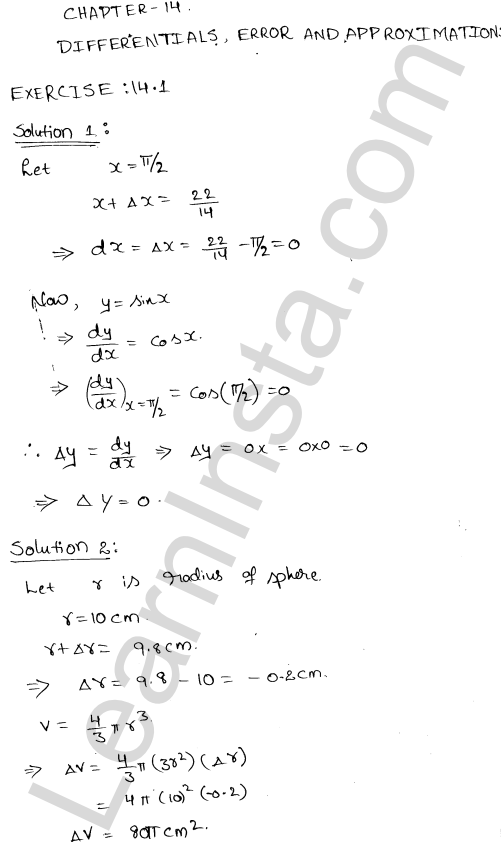 CHAPTER-14.
DIFFERENTIALS, ERROR AND APPROXIMATION:
EXERCISE :14.1
Solution 1:
Let x = π/2
x + Δx = 22/14
⇒ dx = Δx = 22/14 - π/2 = 0
Now, y = sinx
⇒ dy/dx = cosx.
⇒ (dy/dx)x=π/2 = cos(π/2) = 0
∴ Δy = dy/dx ⇒ Δy = 0x = 0x0 = 0
⇒ ΔY = 0.
Solution 2:
Let r is radius of sphere.
r = 10 cm.
r + Δr = 9.8 cm.
⇒ Δr = 9.8 - 10 = -0.2 cm.
V = 4/3 πr³
⇒ ΔV = 4/3 π(3r²)(Δr)
= 4π(10)²(-0.2)
ΔV = 80π cm².
LearnInsta.com